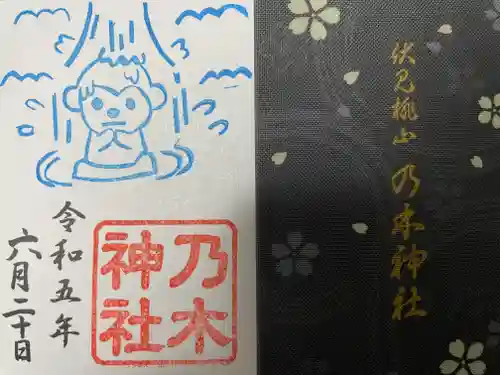 伏見桃山 乃木神社
乃木
神社
令和五年
六月二十日